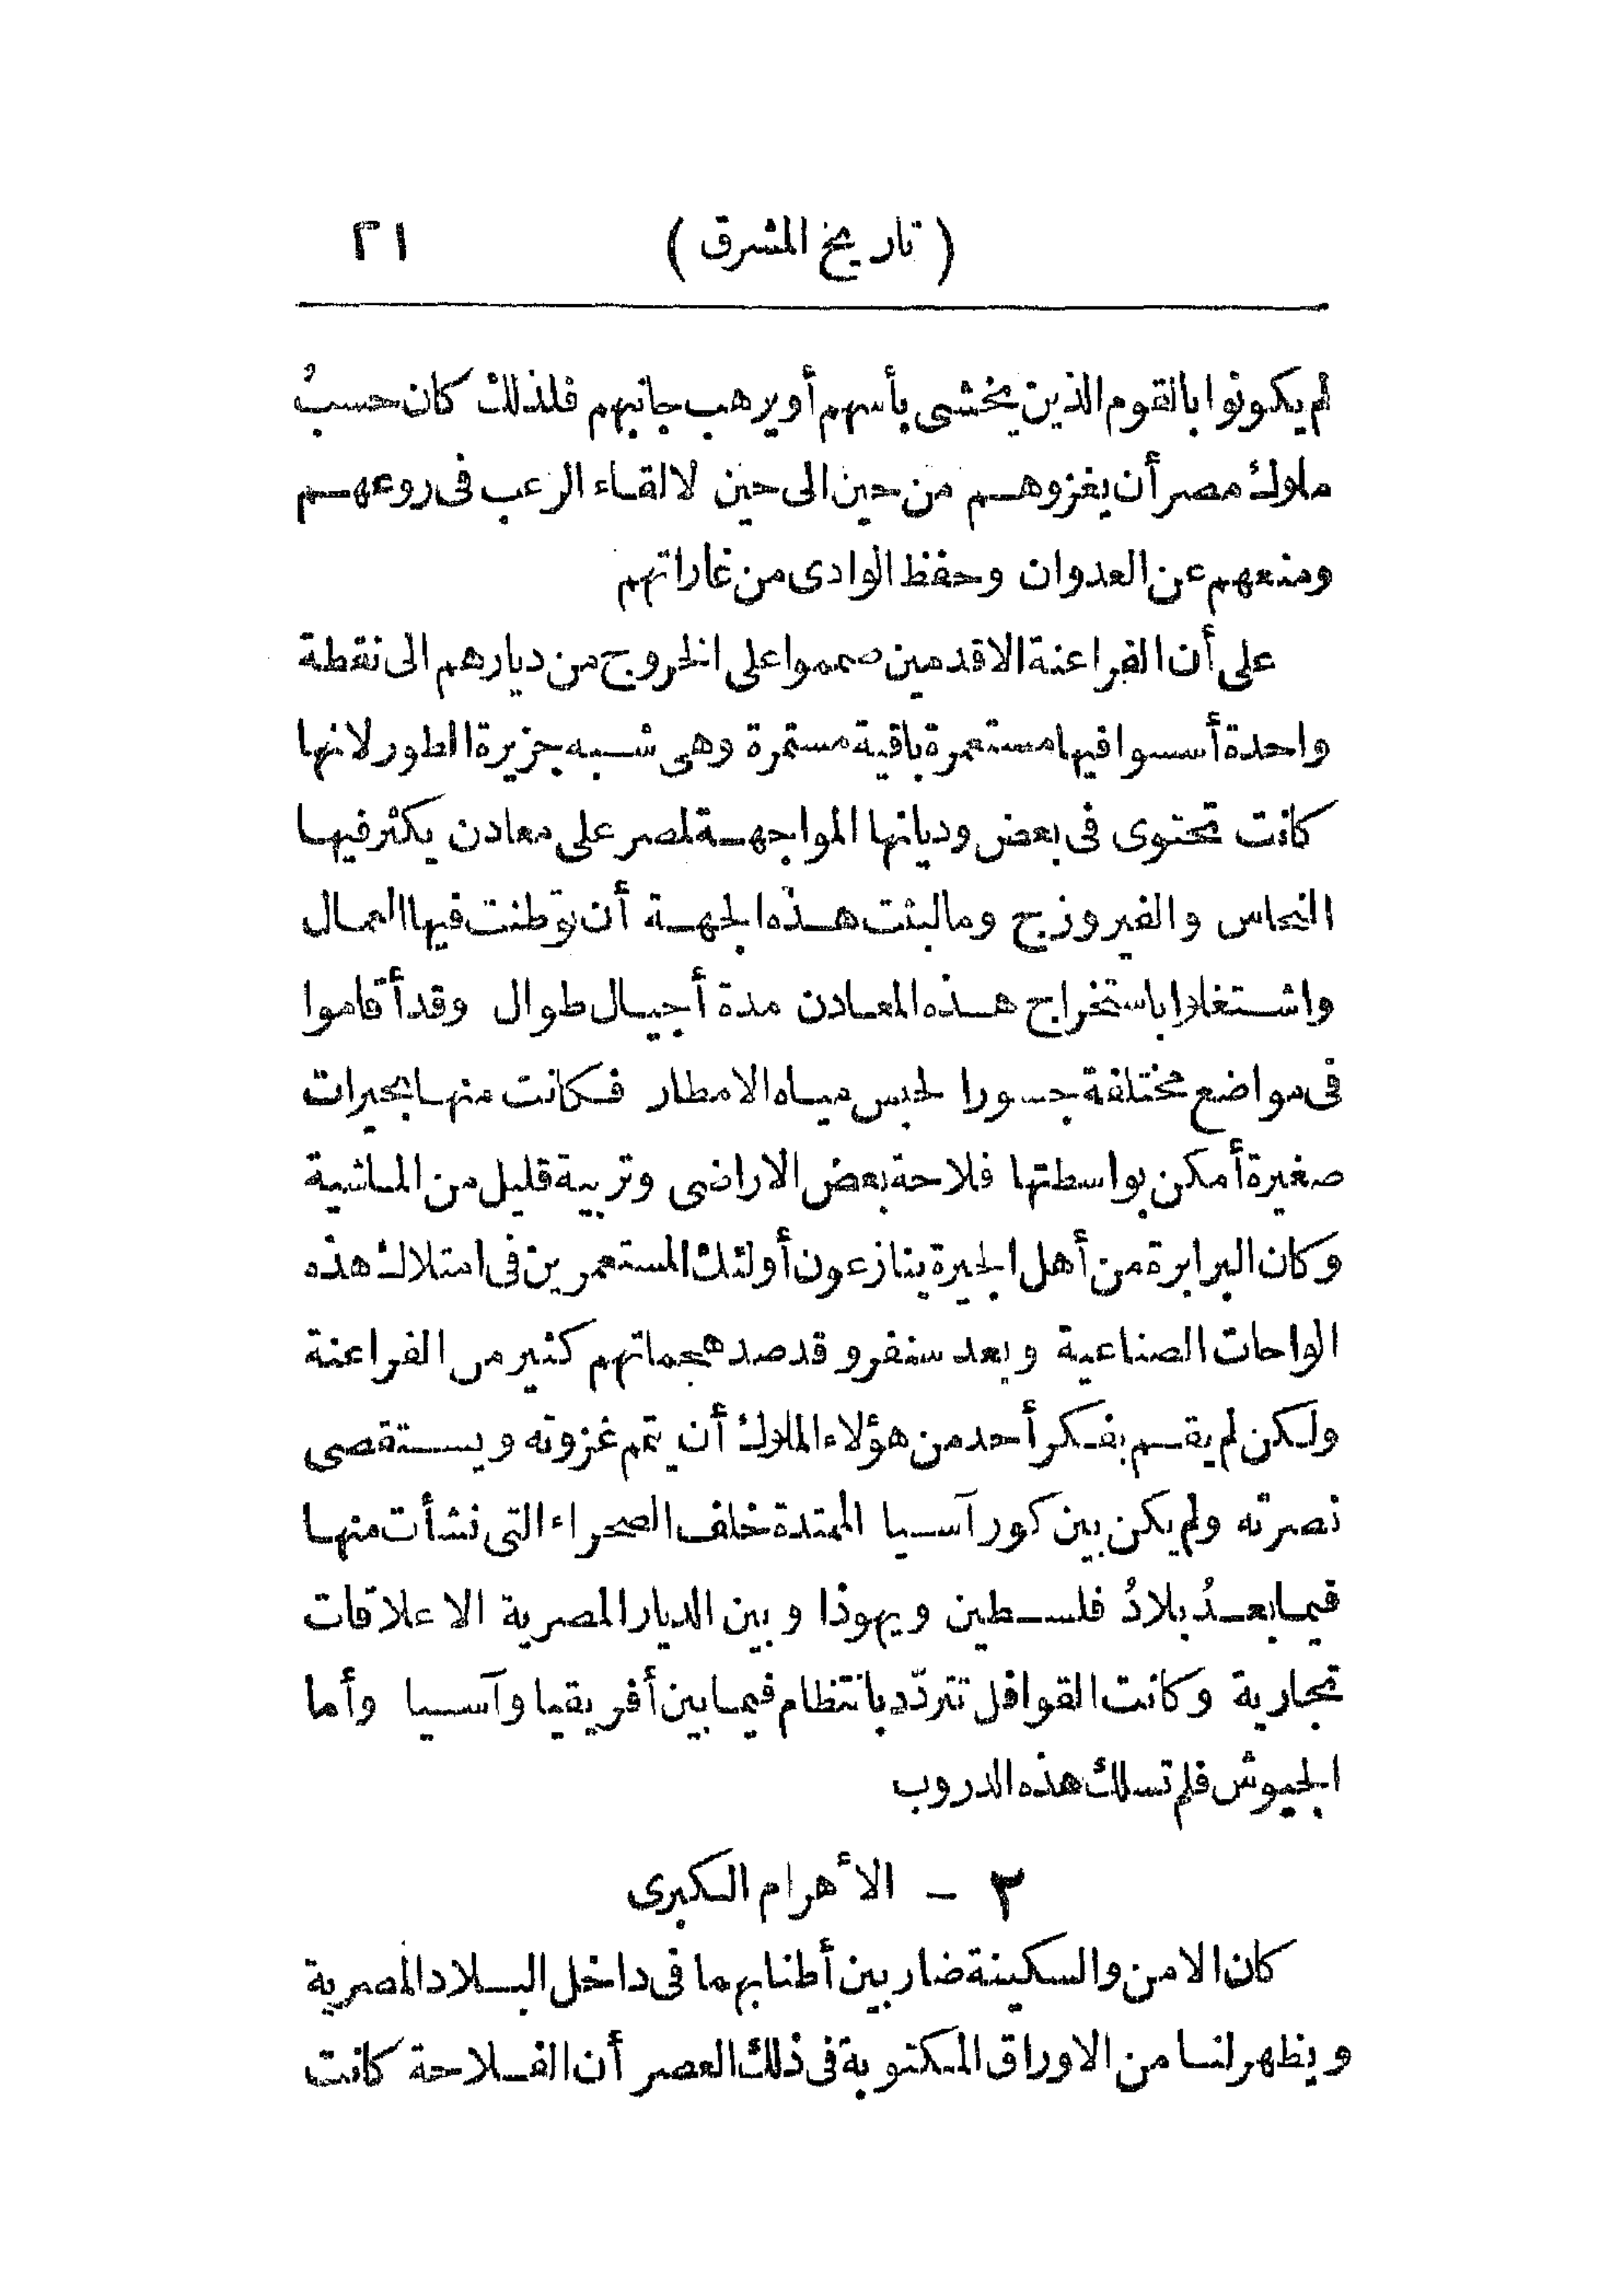 ( تاريخ المشرق ) ٢١
لم يكونوا بالقوم الذين يخشى بأسهم أو يرهب جانبهم فلذلك كان حسبُ
ملوك مصر أن يغزوهم من حين الى حين لالقاء الرعب فى روعهم
ومنعهم عن العدوان وحفظ الوادى من غاراتهم
على أن الفراعنة الاقدمين صمموا على الخروج من ديارهم الى نقطة
واحدة أسسوا فيها مستعمرة باقية مستمرة وهى شبه جزيرة الطور لانها
كانت تحتوى فى بعض وديانها المواجهة لمصر على معادن يكثر فيها
النحاس والفيروزج وما لبثت هذه الجهة أن توطنت فيها العمال
واشتغلوا باستخراج هذه المعادن مدة أجيال طوال وقد أقاموا
فى مواضع مختلفة جسورا لحبس مياه الامطار فكانت منها بحيرات
صغيرة أمكن بواسطتها فلاحة بعض الاراضى وتربية قليل من الماشية
وكان البرابرة من أهل الجيرة ينازعون أولئك المستعمرين فى امتلاك هذه
الواحات الصناعية وبعد سنفرو قد صد هجماتهم كثير من الفراعنة
ولكن لم يقم بفكر أحد من هؤلاء الملوك أن يتم غزوته ويستقصى
نصرته ولم يكن بين كور آسيا الممتدة خلف الصحراء التى نشأت منها
فيما بعدُ بلادُ فلسطين ويهوذا وبين الديار المصرية الا علاقات
تجارية وكانت القوافل تتردّد بانتظام فيما بين أفريقيا وآسيا وأما
الجيوش فلم تسلك هذه الدروب
٣ - الأهرام الكبرى
كان الامن والسكينة ضاربين أطنابهما فى داخل البلاد المصرية
ويظهر لنا من الاوراق المكتوبة فى ذلك العصر أن الفلاحة كانت